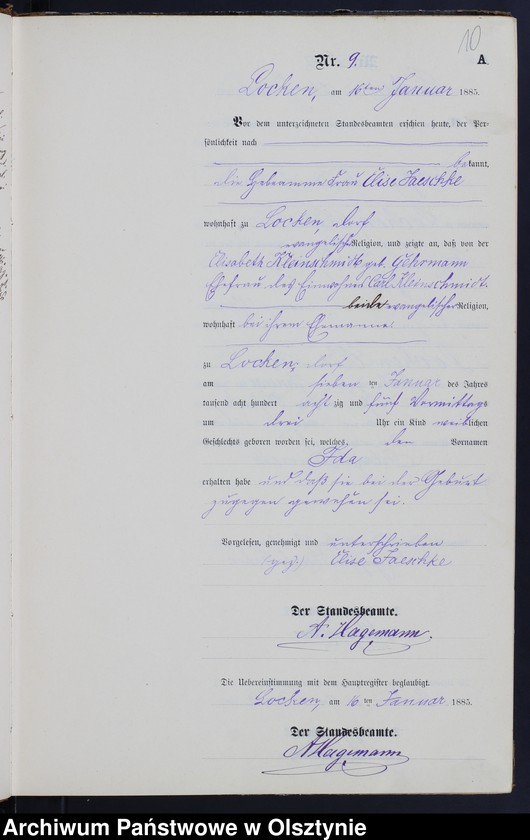 10
Nr. 9.
A
Locken, am 16ten Januar 1885.
Vor dem unterzeichneten Standesbeamten erschien heute, der Per-
sönlichkeit nach
bekannt,
die Hebeamme Frau Elise Jaeschke
wohnhaft zu Locken, Dorf
evangelischer Religion, und zeigte an, daß von der
Elisabeth Kleinschmidt geb. Gehrmann
Ehefrau des Einwohners Carl Kleinschmidt.
beide evangelischer Religion,
wohnhaft bei ihrem Ehemanne
zu Locken, Dorf
am sieben ten Januar des Jahres
tausend acht hundert acht zig und fünf Vormittags
um drei Uhr ein Kind weiblichen
Geschlechts geboren worden sei, welches den Vornamen
Ida
erhalten habe und daß sie bei der Geburt
zugegen gewesen sei.
Vorgelesen, genehmigt und unterschrieben
(gez.) Elise Jaeschke
Der Standesbeamte.
A. Hagemann.
Die Uebereinstimmung mit dem Hauptregister beglaubigt.
Locken, am 16 ten Januar 1885.
Der Standesbeamte.
A Hagemann
Archiwum Państwowe w Olsztynie